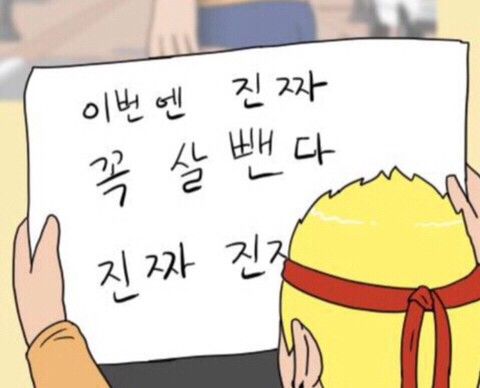 이번엔 진짜
꼭 살 뺀다
진짜 진짜